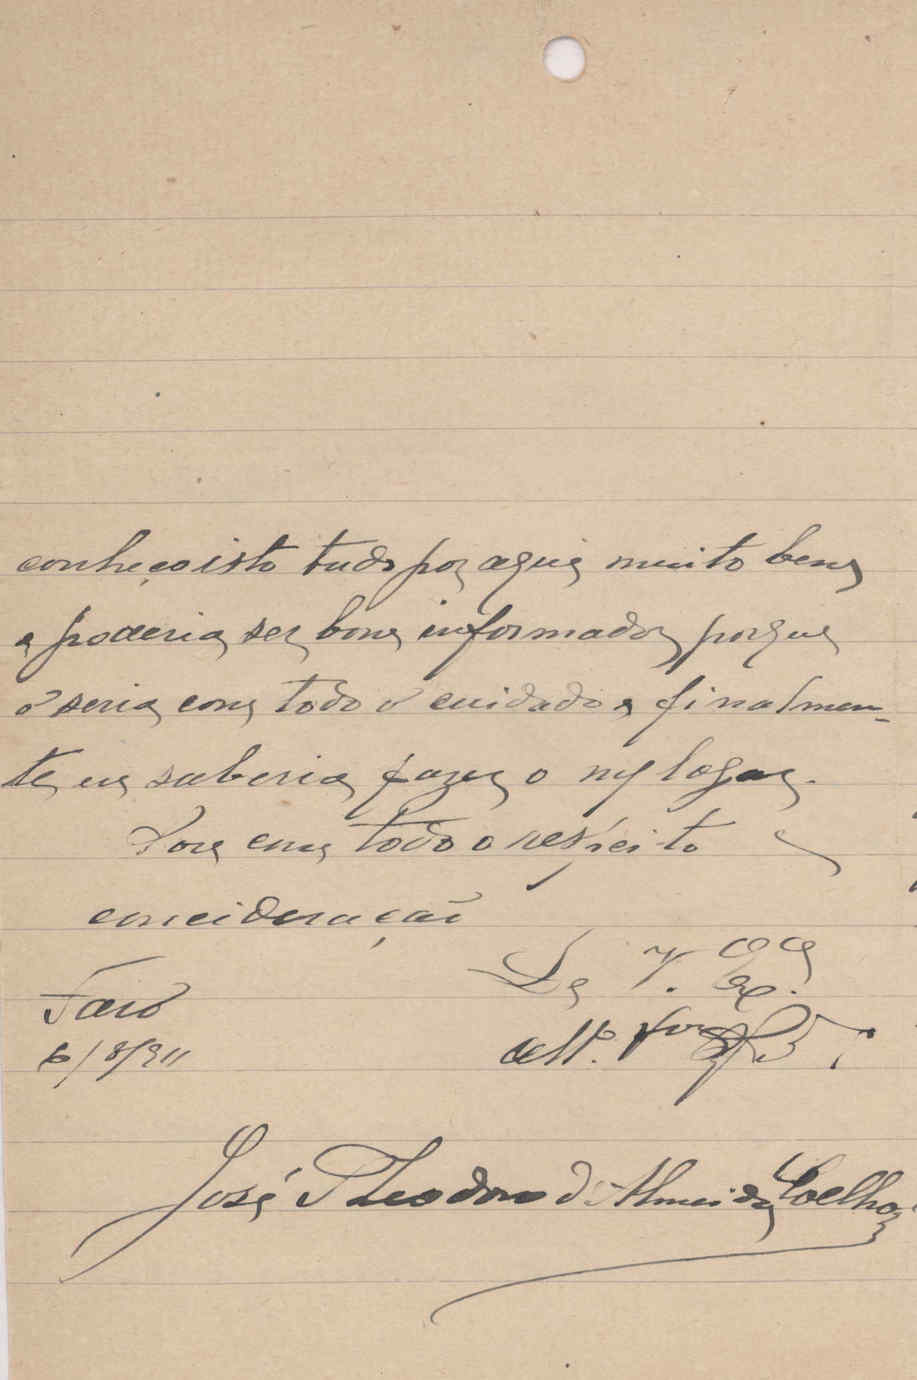 conheço isto tudo por aqui muito bem
e poderia ser bom informador porque
o seria com todo o cuidado e finalmen-
te eu saberia fazer o m/ logar.
Sou com todo o respeito
concideração
De V. Ex.ª
Faro
att.
6/8/911
José Theodoro d'Almeida Coelho